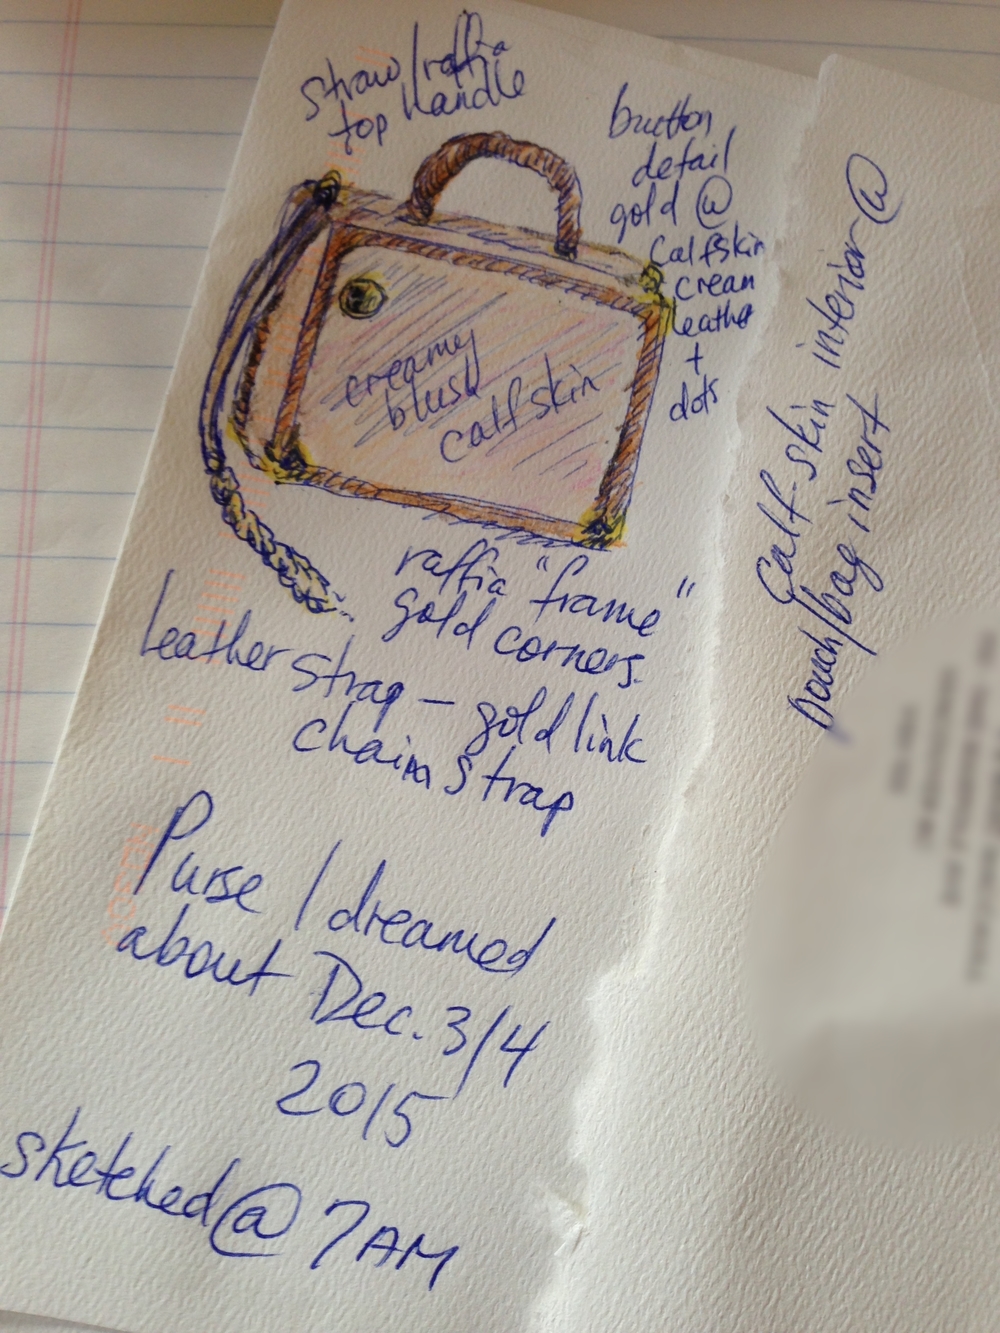 straw/raffia
top handle
button
detail
gold @
Calfskin
cream
leather
+
dots
creamy
blush
calfskin
raffia "frame"
gold corners.
Leather strap – gold link
chain strap
Calf-skin interior @
pouch/bag insert
Purse I dreamed
about Dec. 3/4
2015
sketched @ 7AM